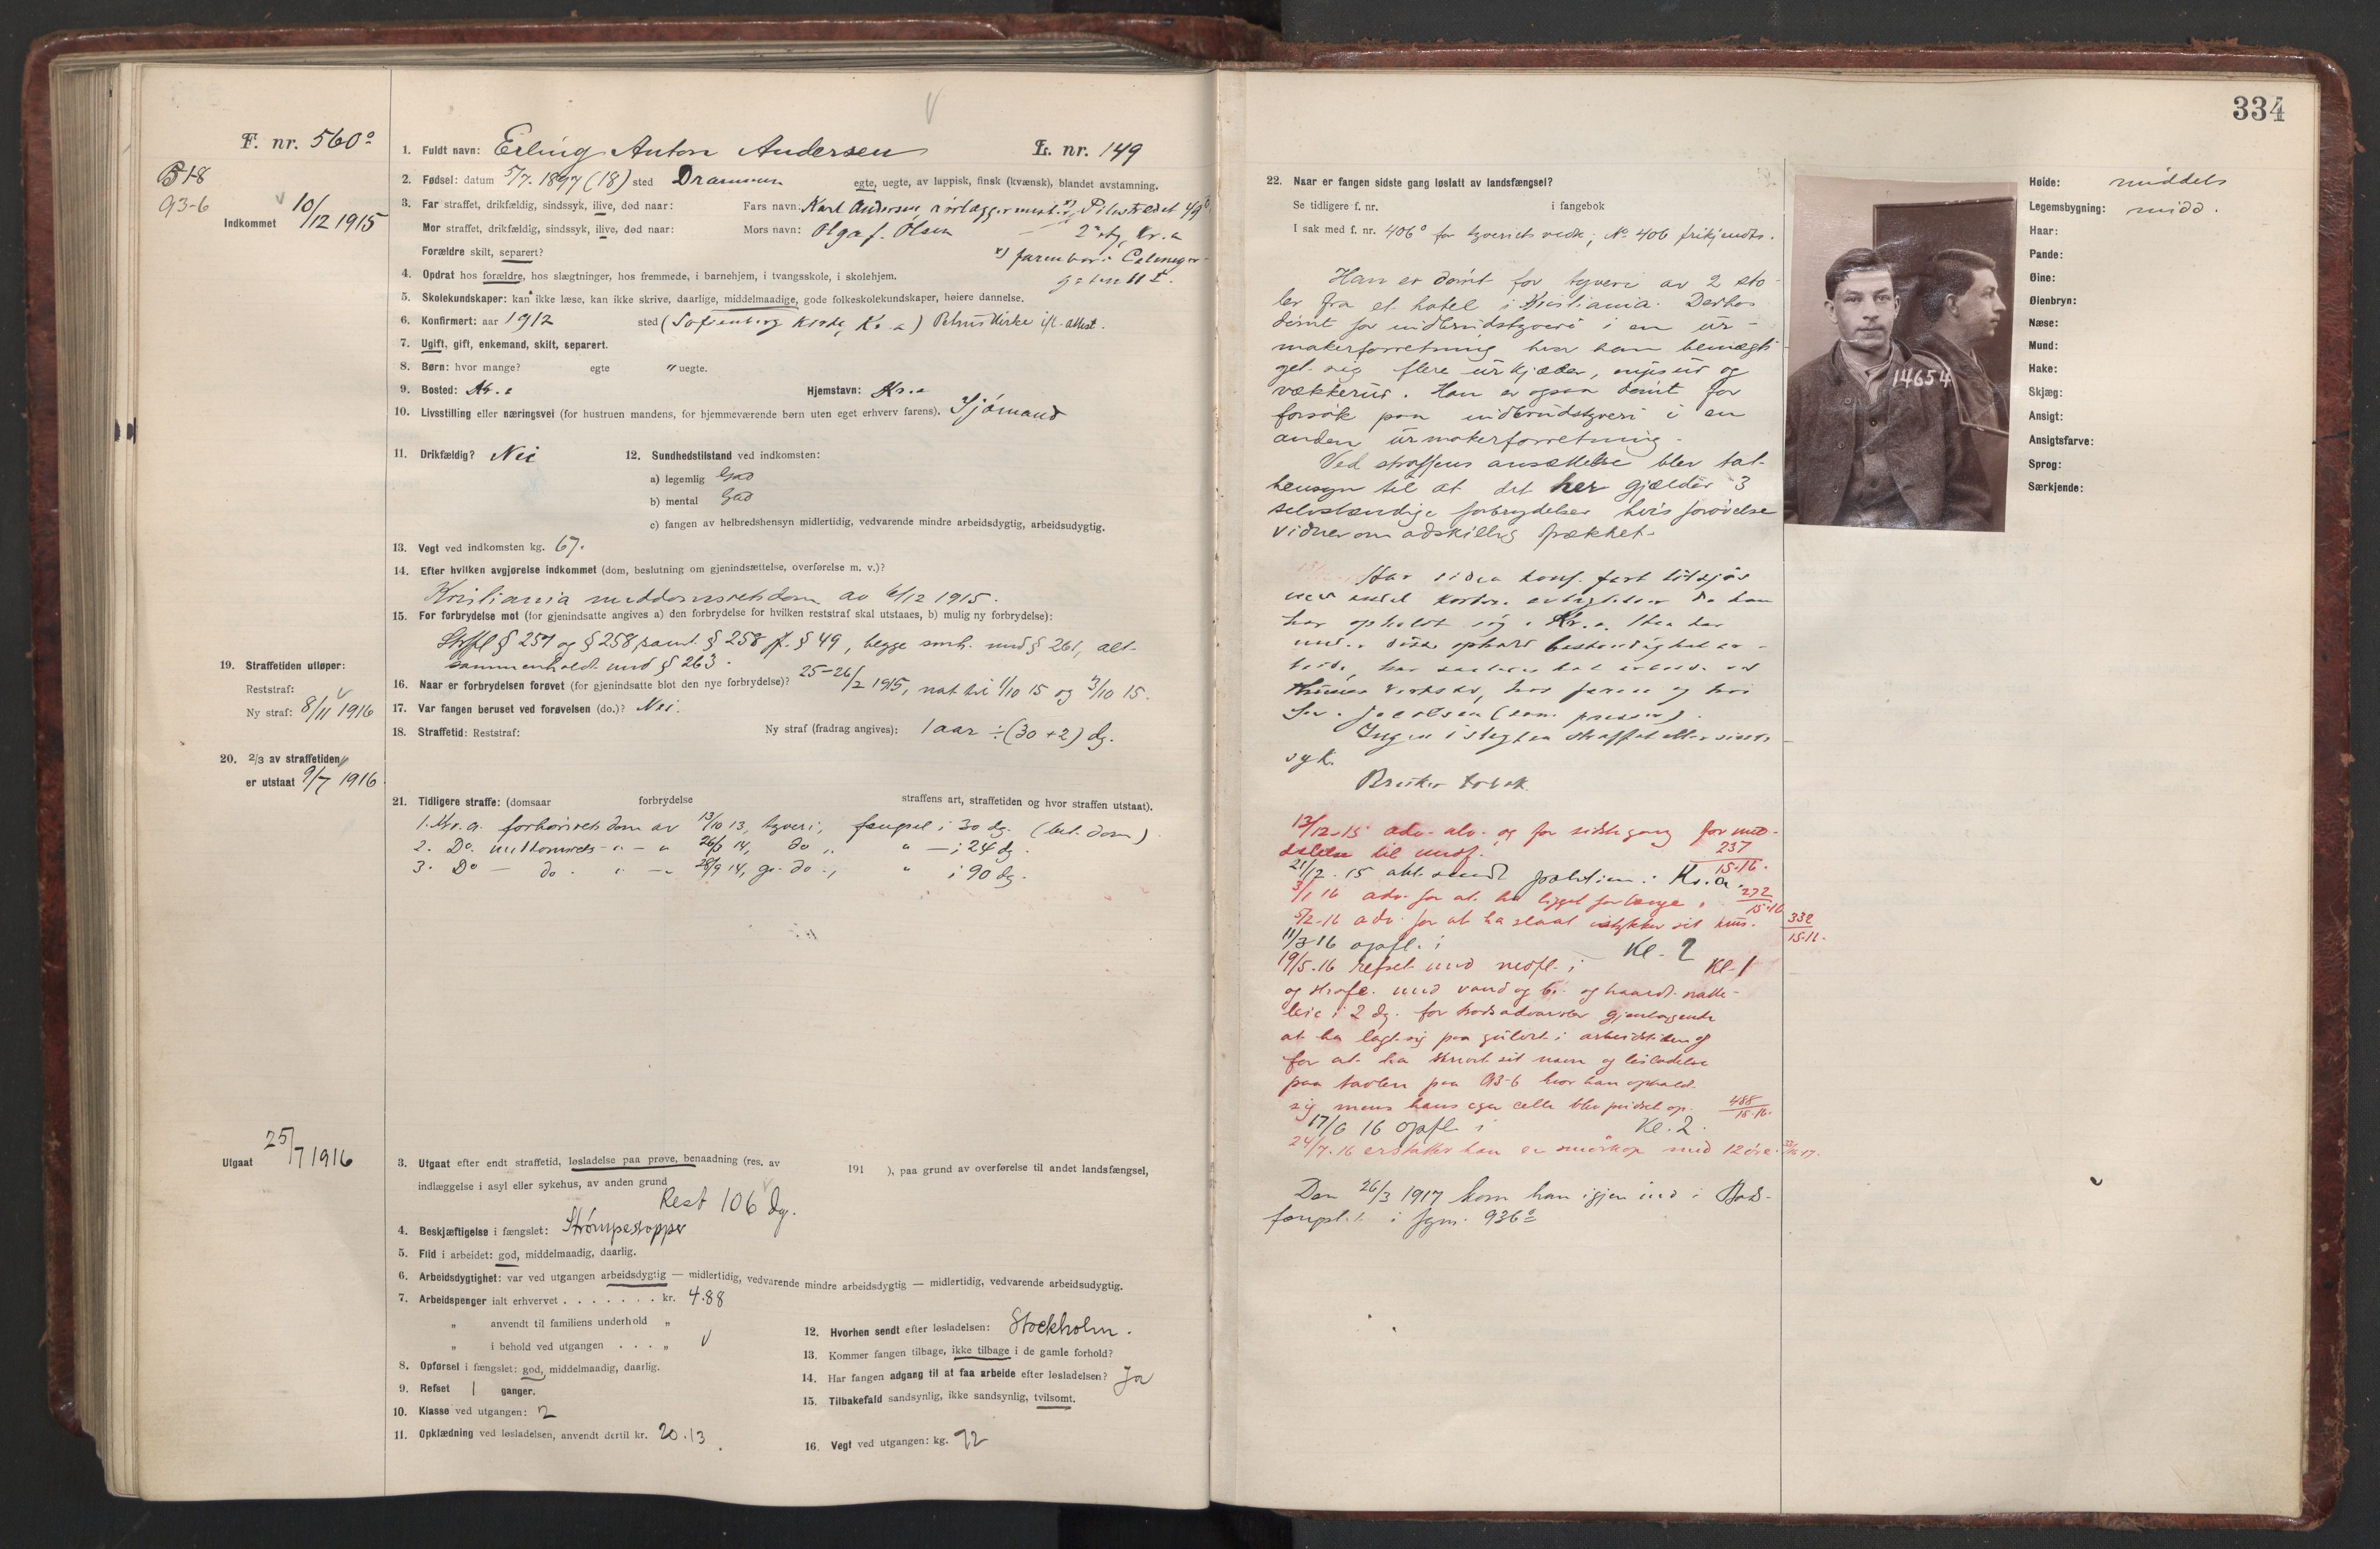 334
F. nr. 560ᵒ
B 1-8
A3-6
Indkommet 10/12 1915
1. Fuldt navn: Erling Anton Andersen L. nr. 149
2. Fødsel: datum 5/7. 1897 (18) sted Drammen egte, uegte, av lappisk, finsk (kvænsk), blandet avstamning.
3. Far straffet, drikfældig, sindssyk, ilive, død naar: Fars navn: Karl Andersen, rørlæggermester, x) Pilestredet 49
Mor straffet, drikfældig, sindssyk, ilive, død naar: Mors navn: Olga f. Olsen 2 etg, Kr.a
Forældre skilt, separert? x) faren bor i
4. Opdrat hos forældre, hos slægtninger, hos fremmede, i barnehjem, i tvangsskole, i skolehjem. gaten 11 I.
5. Skolekundskaper: kan ikke læse, kan ikke skrive, daarlige, middelmaadige, gode folkeskolekundskaper, høiere dannelse.
6. Konfirmert: aar 1912 sted (Sofienberg Kirke, Kr.a) Petrus Kirke ifl. attest.
7. Ugift, gift, enkemand, skilt, separert.
8. Børn: hvor mange? egte " uegte.
9. Bosted: Kr.a Hjemstavn: Kr.a
10. Livsstilling eller næringsvei (for hustruen mandens, for hjemmeværende børn uten eget erhverv farens). Sjømand
11. Drikfældig? Nei 12. Sundhedstilstand ved indkomsten:
a) legemlig God
b) mental God
c) fangen av helbredshensyn midlertidig, vedvarende mindre arbeidsdygtig, arbeidsudygtig.
13. Vegt ved indkomsten kg. 67.
14. Efter hvilken avgjørelse indkommet (dom, beslutning om gjenindsættelse, overførelse m. v.)?
Kristiania meddomsretsdom av 6/12 1915.
15. For forbrydelse mot (for gjenindsatte angives a) den forbrydelse for hvilken reststraf skal utstaaes, b) mulig ny forbrydelse):
Strfl § 257 og § 258, samt § 258 jf. § 49, begge smh. med § 261, alt-
sammenholdt med § 263.
16. Naar er forbrydelsen forøvet (for gjenindsatte blot den nye forbrydelse)? 25-26/2 1915, nat til 1/10 15 og 3/10 15.
17. Var fangen beruset ved forøvelsen (do.)? Nei.
18. Straffetid: Reststraf: Ny straf (fradrag angives): 1 aar ÷ (30 + 2) dg.
19. Straffetiden utløper:
Reststraf:
Ny straf: 8/11 1916
20. 2/3 av straffetiden
er utstaat 9/7 1916
21. Tidligere straffe: (domsaar forbrydelse straffens art, straffetiden og hvor straffen utstaat).
1. Kr.a. forhørsrets dom av 13/10 13, tyveri, fængsel i 30 dg. (bet. dom)
2. Do. meddomsrets - " - " 26/3 14, do " " — i 24 dg.
3. Do — do. " — " 28/9 14, gr. do ., " i 90 dg.
Utgaat 25/7 1916
3. Utgaat efter endt straffetid, løsladelse paa prøve, benaadning (res. av 191 ), paa grund av overførelse til andet landsfængsel,
indlæggelse i asyl eller sykehus, av anden grund
Rest 106 dg.
4. Beskjæftigelse i fængslet: Strømpestopper
5. Flid i arbeidet: god, middelmaadig, daarlig.
6. Arbeidsdygtighet: var ved utgangen arbeidsdygtig — midlertidig, vedvarende mindre arbeidsdygtig — midlertidig, vedvarende arbeidsudygtig.
7. Arbeidspenger ialt erhvervet . . . . . . . kr. 4.88
" anvendt til familiens underhold "
" i behold ved utgangen . . . "
8. Opførsel i fængslet: god, middelmaadig, daarlig.
9. Refset 1 ganger.
10. Klasse ved utgangen: 2
11. Opklædning ved løsladelsen, anvendt dertil kr. 20.13
12. Hvorhen sendt efter løsladelsen: Stockholm.
13. Kommer fangen tilbage, ikke tilbage i de gamle forhold?
14. Har fangen adgang til at faa arbeide efter løsladelsen? Ja
15. Tilbakefald sandsynlig, ikke sandsynlig, tvilsomt.
16. Vegt ved utgangen: kg. 72
22. Naar er fangen sidste gang løslatt av landsfængsel?
Se tidligere f. nr. i fangebok
I sak med f. nr. 406ᵒ for tyveriets vedk., No 406 frikjendts.
Han er dømt for tyveri av 2 sto-
ler fra et hotel i Kristiania. Derhos
dømt for indbrudstyveri i en ur-
makerforretning hvor han bemægti
get sig flere urkjæder, ur og
vækkerur. Han er ogsaa dømt for
forsøk paa indbrudstyveri i en
anden urmakerforretning.
Ved straffens ansættelse blev tat
hensyn til at det her gjælder 3
selvstændige forbrydelser hvis forøvelse
vidner om adskillig frækhet.
Har siden konf. fart tilsjøs
med endel kortere avbrytelser da han
har opholdt sig i Kr.a. Han har
under disse ophold
har arbeide ved
hos faren og hos
Jacobsen (som presser).
Ingen i slegten straffet eller sinds-
syk.
Bruker tobak.
13/12-15 adv. alv. og for sidste gang for med-
delelse til medf. 237/15-16.
21/12.15 akt sendt politiet i Kr.a.
3/1 16 adv. for at ha ligget for længe. 272/15-16
5/2-16 adv. for at ha slaat istykker sit krus. 332/15-16.
11/3-16 opfl. i Kl. 2
19/5.16 refset med nedfl. i Kl. 1
og straf. med vand og br. og haardt natte-
leie i 2 dg. for trods advarsler gjentagende
at ha lagt sig paa gulvet i arbeidstiden og
for at ha skrevet sit navn og løsladelse
paa tavlen paa A3-6 hvor han opholdt
sig mens hans egen celle blev pudset op. 488/15-16.
17/6 16 opfl. i Kl. 2.
24/7.16 erstatter han en med 12 øre.
Den 26/3 1917 kom han igjen ind i Bods-
fængslet i fgnr. 936ᵒ
14654
Høide: middels
Legemsbygning: midd.
Haar:
Pande:
Øine:
Øienbryn:
Næse:
Mund:
Hake:
Skjæg:
Ansigt:
Ansigtsfarve:
Sprog:
Særkjende: